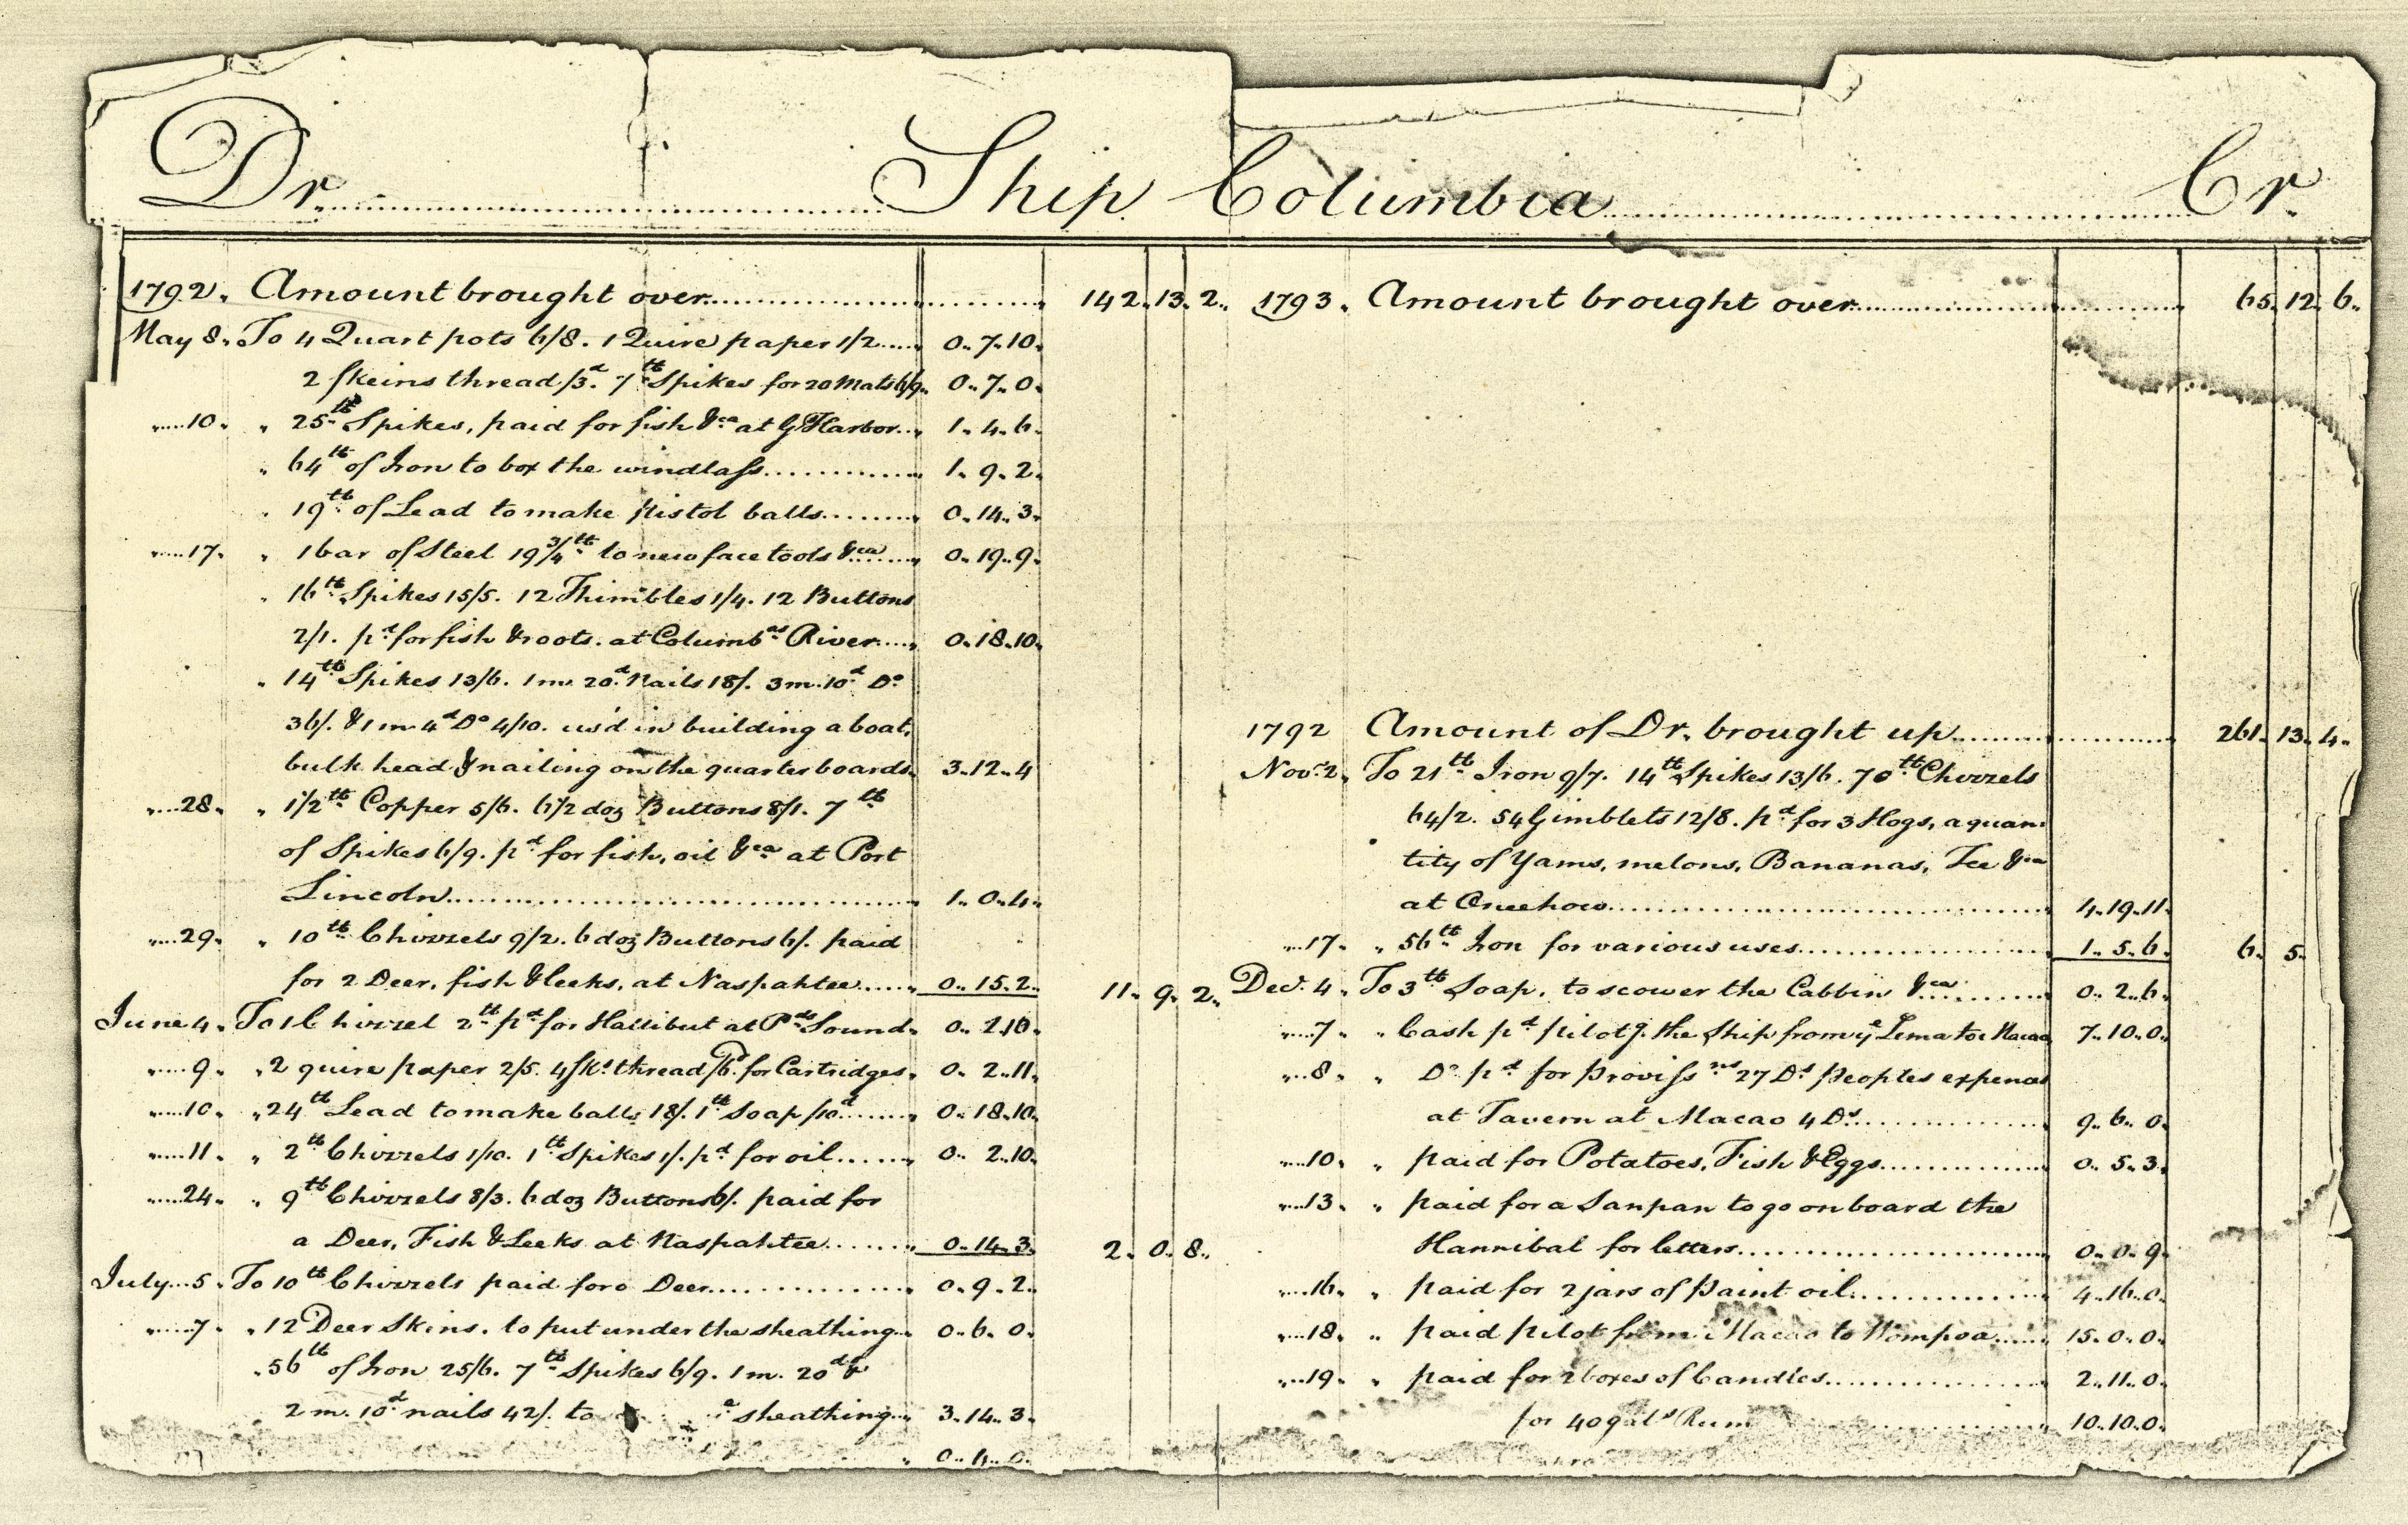 Dr. Ship Columbia Cr.
1792. Amount brought over 142. 13. 2.
May 8. To 4 Quart pots 6/8. 1 Quire paper 1/2 0. 7. 10.
2 skeins thread /3d. 7lb Spikes for 20 Mats 6/9. 0. 7. 0.
10. " 25lb Spikes, paid for fish &ca at G Harbor 1. 4. 6.
" 64lb of Iron to box the windlass 1. 9. 2.
" 19lb of Lead to make pistol balls 0. 14. 3.
17. " 1 bar of Steel 19 3/4lb to new face tools &ca 0. 19. 9.
" 16lb Spikes 15/5. 12 Thimbles 1/4. 12 Buttons
2/1. pd for fish & roots. at Columbas River 0. 18. 10.
" 14lb Spikes 13/6. 1 m. 20d Nails 18/. 3 m. 10d Do
36/. & 1 m 4d Do 4/10. us'd in building a boat,
bulk head & nailing on the quarter boards. 3. 12. 4
28. " 1/2lb Copper 5/6. 6 1/2 doz Buttons 8/1. 7lb
of Spikes 6/9. pd for fish, oil &ca at Port
Lincoln 1. 0. 4.
29. " 10lb Chizzels 9/2. 6 doz Buttons 6/. paid
for 2 Deer, fish & leeks, at Naspahtee 0. 15. 2. 11. 9. 2.
June 4. To 1 Chizzel 2lb pd for Hallibut at Pds Sound. 0. 2. 10.
9. " 2 quire paper 2/5. 4 sks thread /6d. for Cartridges. 0. 2. 11.
10. " 24lb Lead to make balls 18/. 1lb Soap /10d 0. 18. 10.
11. " 2lb Chizzels 1/10. 1lb Spikes 1/. pd for oil 0. 2. 10.
24. " 9lb Chizzels 8/3. 6 doz Buttons 6/. paid for
a Deer, Fish & Leeks at Naspahtee 0. 14. 3. 2. 0. 8.
July 5. To 10lb Chizzels paid for a Deer 0. 9. 2.
7. " 12 Deer Skins. to put under the sheathing 0. 6. 0.
" 56lb of Iron 25/6. 7lb Spikes 6/9. 1 m. 20d &
2 m. 10d nails 42/. to sheathing 3. 14. 3.
0. 4. 0.
1793. Amount brought over 65. 12. 6.
1792 Amount of Dr. brought up 261. 13. 4.
Novr 2. To 21lb Iron 9/7. 14lb Spikes 13/6. 70lb Chizzels
64/2. 54 Gimblets 12/8. pd for 3 Hogs, a quan
tity of Yams, melons, Bananas, Tee &ca
at Oneehow 4. 19. 11.
17. " 56lb Iron for various uses 1. 5. 6. 6. 5.
Decr. 4. To 3lb Soap, to scower the Cabbin &ca 0. 2. 6.
7. " Cash pd pilotg. the Ship from ye Lema to Macao 7. 10. 0.
8. " Do pd for Provissns 27 Ds peoples expences
at Tavern at Macao 4 Ds 9. 6. 0.
10. " paid for Potatoes, Fish & Eggs 0. 5. 3.
13. " paid for a Sanpan to go on board the
Hannibal for letters 0. 0. 9
16. " paid for 2 jars of paint oil 4. 16. 0.
18. " paid pilot from Macao to Wompoa 15. 0. 0.
19. " paid for 2 boxes of Candles 2. 11. 0.
for 40 gals Rum 10. 10. 0.